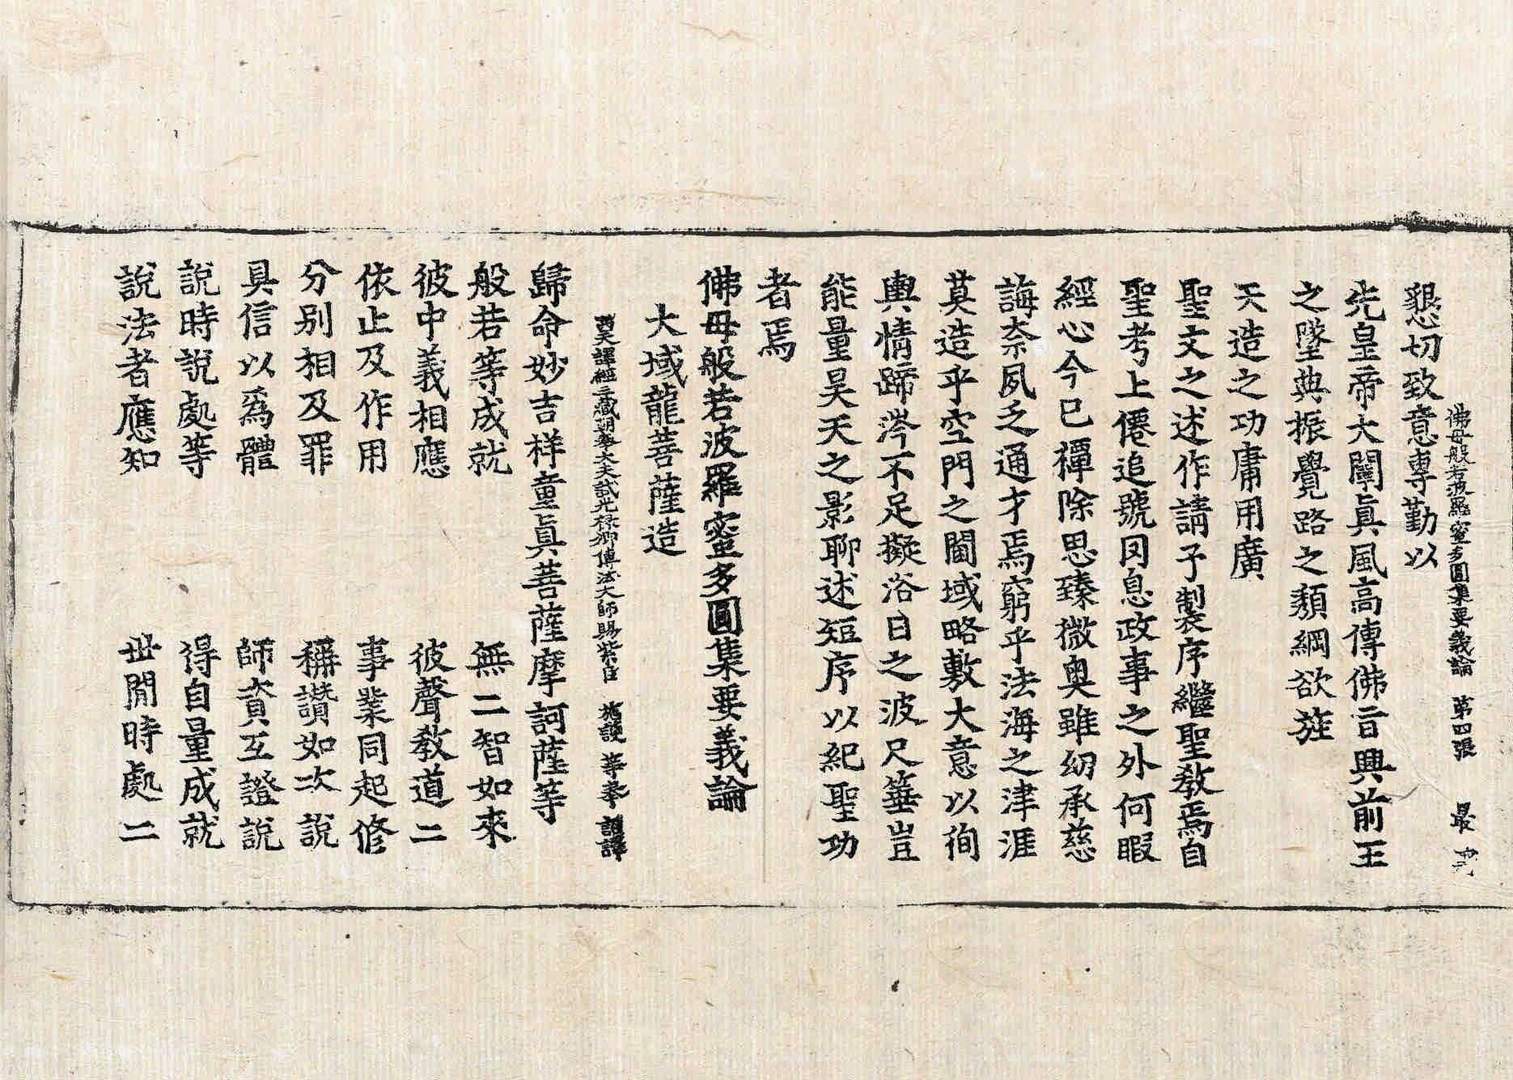 佛母般若波羅蜜多圓集要義論 第四張 最
懇切致意專勤以
先皇帝大闡眞風高傳佛旨興前王
之墜典振覺路之頹綱欲旌
天造之功庸用廣
聖文之述作請予製序繼聖教焉自
聖考上僊追號罔息政事之外何暇
經心今已禫除思臻微奧雖紉承慈
誨奈夙乏通才焉窮乎法海之津涯
莫造乎空門之閫域略敷大意以徇
輿情蹄涔不足擬浴日之波尺箠豈
能量昊天之影聊述短序以紀聖功
者焉
佛母般若波羅蜜多圓集要義論
大域龍菩薩造
譯經三藏朝奉大夫試光祿卿傳法大師賜紫臣 施護 等奉 詔譯
歸命妙吉祥童眞菩薩摩訶薩等
般若等成就 無二智如來
彼中義相應 彼聲教道二
依止及作用 事業同起修
分別相及罪 稱讚如次說
具信以爲體 師資互證說
說時說處等 得自量成就
說法者應知 世間時處二